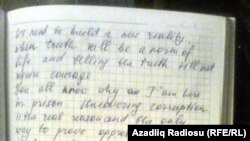 We need to build a new reality
when truth will be a norm of
life and telling the truth will not
require courage
You all know why am I am here
in prison. Uncovering corruption
is the real reason and the only
way to prove
Azadlıq Radiosu (RFE/RL)